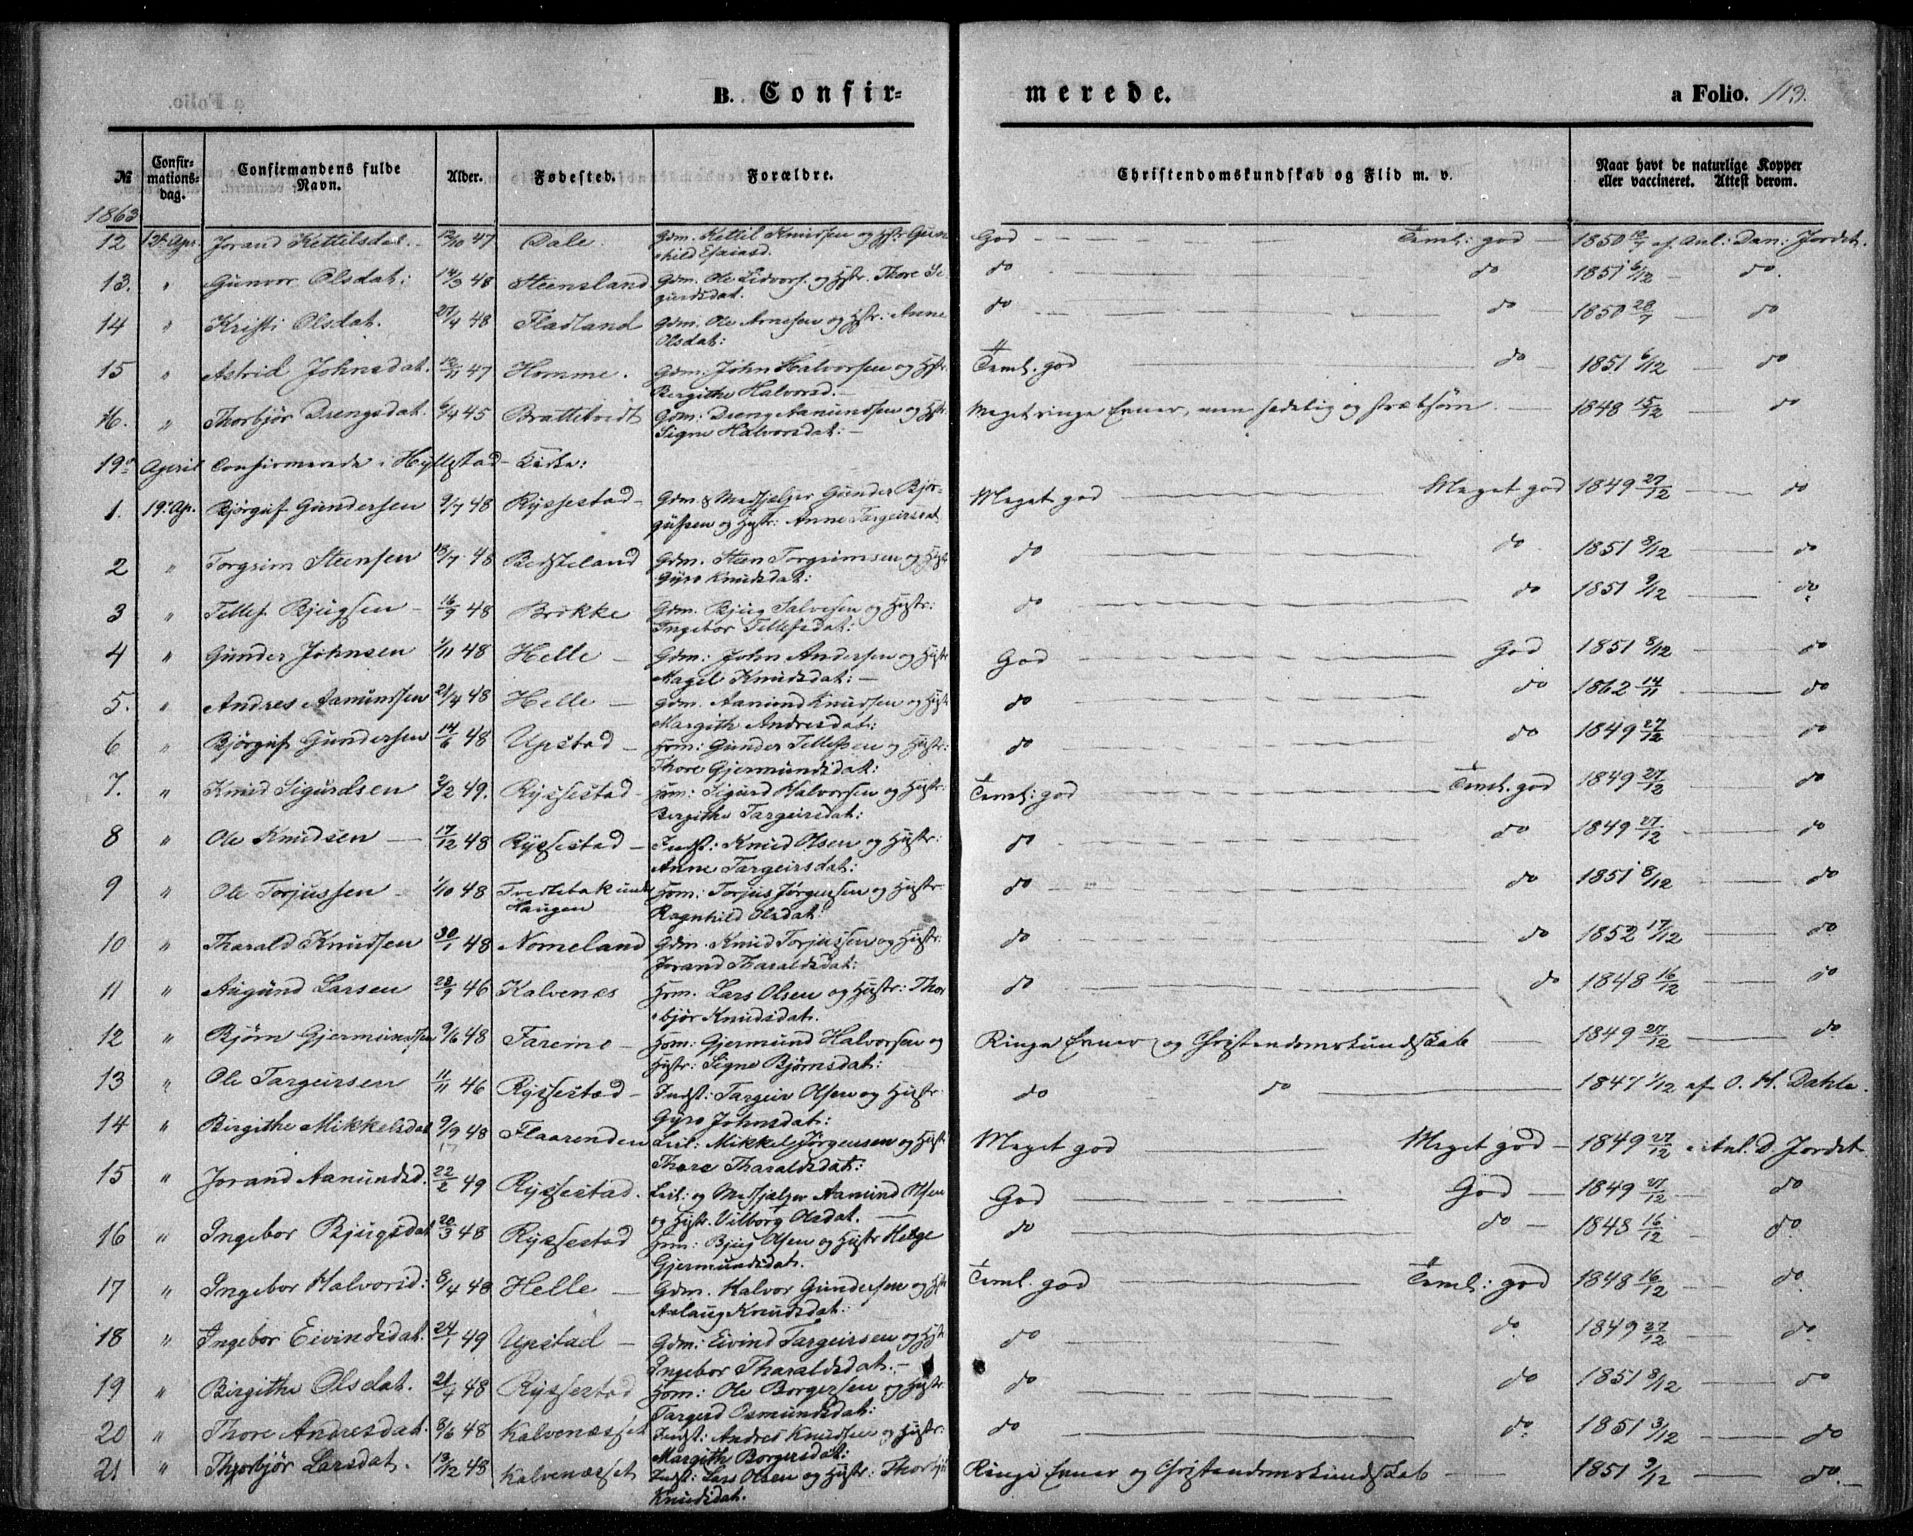 B. Confir- merede. a Folio. 113.
№ Confir-mations-dag. Confirmandens fulde Navn. Alder. Fødested. Forældre. Christendomskundskab og Flid m. v. Naar havt de naturlige Kopper eller vaccineret. Attest derom.
1863
12 12t Apr. Jorand Kettilsdat. 12/10 47 Dale Gdm. Kettil Knudsen og Hstr: Gun- God Teml: god 1850 12/7 af Anl: Dan: Jordet.
hild
13. " Gunvor Olsdat: 14/3 48 Steensland Gdm. Ole Lidvors. og Hstr. Thore Si- do do 1851 6/12 do.
gurdsdat.
14 " Kristi Olsdat. 27/4 48 Fladland Gdm. Ole Arnesen og Hstr: Anne do do 1850 28/7 do
Olsdat:
15 " Astrid Johnsdat. 12/11 47 Homme. Gdm. John Halvorsen og Hstr. Teml. god do 1851 6/12 do
Birgithe Halvorsd.
16. " Thorbjør Drengsdat. 6/4 45 Brattetveidt Gdm. Dreng Aanundsen og Hstr Meget ringe Evner, men sædelig og stræbsom. 1848 15/12 do
Signe Halvorsdat:
19de April Confirmerede i Hyllestad Kirke:
1. 19 Ap. Bjørguf Gundersen 9/7 48 Ryssestad Gdm & Medhjælper Gunder Bjør- Meget god Meget god 1849 27/12 do
gufsen og Hustr: Anne Targeirsdat
2 " Torgrim Steensen 13/7 48 Bedsteland Gdm. Steen Torgrimsen og Hustr do do 1851 8/12 do
Gyro Knudsdat:
3 " Tellef Bjugsen 16/9 48 Brøkke Gdm. Bjug Salvesen og Hustr: do do 1851 9/12 do
Ingebor Tellefsdat:
4 " Gunder Johnsen 1/11 48 Helle Gdm: John Andersen og Hustr God God 1851 8/12 do
Aagot Knudsdat:
5. " Andres Aamundsen 21/4 48 Helle Gdm. Aamund Knudsen og Hustr do do 1862 14/11 do
Margith Andresdat:
6 " Bjørguf Gundersen 14/6 48 Upstad Hom: Gunder Tellefsen og Hustr: do do 1849 27/12 do
Thore Gjermundsdat:
7. " Knud Sigurdsen 2/2 49. Ryssestad Hom: Sigurd Halvorsen og Hustr: Teml: god Teml. god 1849 27/12 do
Birgithe Targeirsdat:
8 " Ole Knudsen 17/12 48 Ryssestad Indst: Knud Olsen og Hustr: do do 1849 27/12 do
Anne Targeirsdat:
9 " Ole Torjussen 1/10 48 Tvedtebak und Haugen Hom: Torjus Jørgensen og Hustr do do 1851 8/12 do
Ragnhild Olsdat:
10 " Tharald Knudsen 30/1 48 Nomeland Gdm. Knud Torjussen og Hustr. do do 1852 17/12 do
Jorand Tharaldsdat:
11 " Augund Larsen 28/9 46 Kalvenæs Hom. Lars Olsen og Hustr: Thor- do do 1848 16/12 do
bjør Knudsdat.
12 " Bjørn Gjermundsen 9/6 48 Fareime Hom: Gjermund Halvorsen og Ringe Evner og Christendomskundskab 1849 27/12 do.
Hustr: Signe Bjørnsdat:
13 " Ole Targeirsen 11/11 46 Ryssestad Indst: Targeir Olsen og Hustr do do 1847 1/12 af O. H. Dahle.
Gyro Johnsdat:
14 " Birgithe Mikkelsdat 9/9 48 Flaarenden Leil: Mikkel Jørgensen og Hustr Meget god Meget god 1849 27/12 Anl. D. Jordet
Thore Tharaldsdat:
15 " Jorand Aamundsd. 22/2 49 Ryssestad. Leil: og Medhjælper Aamund Olsen God God 1849 27/12 do
og Hustr. Vilborg Olsdat.
16 " Ingebor Bjugsdat 20/3 48 Ryssestad Hom: Bjug Olsen og Hustr Helge do do 1848 16/12 do.
Gjermundsdat.
17 " Ingebor Halvorsd: 8/4 48 Helle Gdm. Halvor Gundersen og Hstr Teml. god Teml: god 1848 16/12 do.
Aslaug Knudsdat:
18 " Ingebor Eivindsdat. 24/1 49 Upstad Gdm: Eivind Targeirsen og Hstr do do. 1849 27/12 do.
Ingebor Tharaldsdat.
19 " Birgithe Olsdat. 21/7 48 Ryssestad Hom: Ole Borgersen og Hustr. do do 1851 8/12 do
Targerd Osmundsdat:
20 " Thore Andresdat. 8/6 48 Kalvenæsset Indst: Andres Knudsen og Hustr. do do. 1851 3/12 do
Margith Borgersdat:
21 " Thorbjør Larsdat. 13/12 48 Kalvenæsset Indst: Lars Olsen og Hustr: Thorbjør Ringe Evner og Christendomskundskab 1851 9/12 do.
Knudsdat.